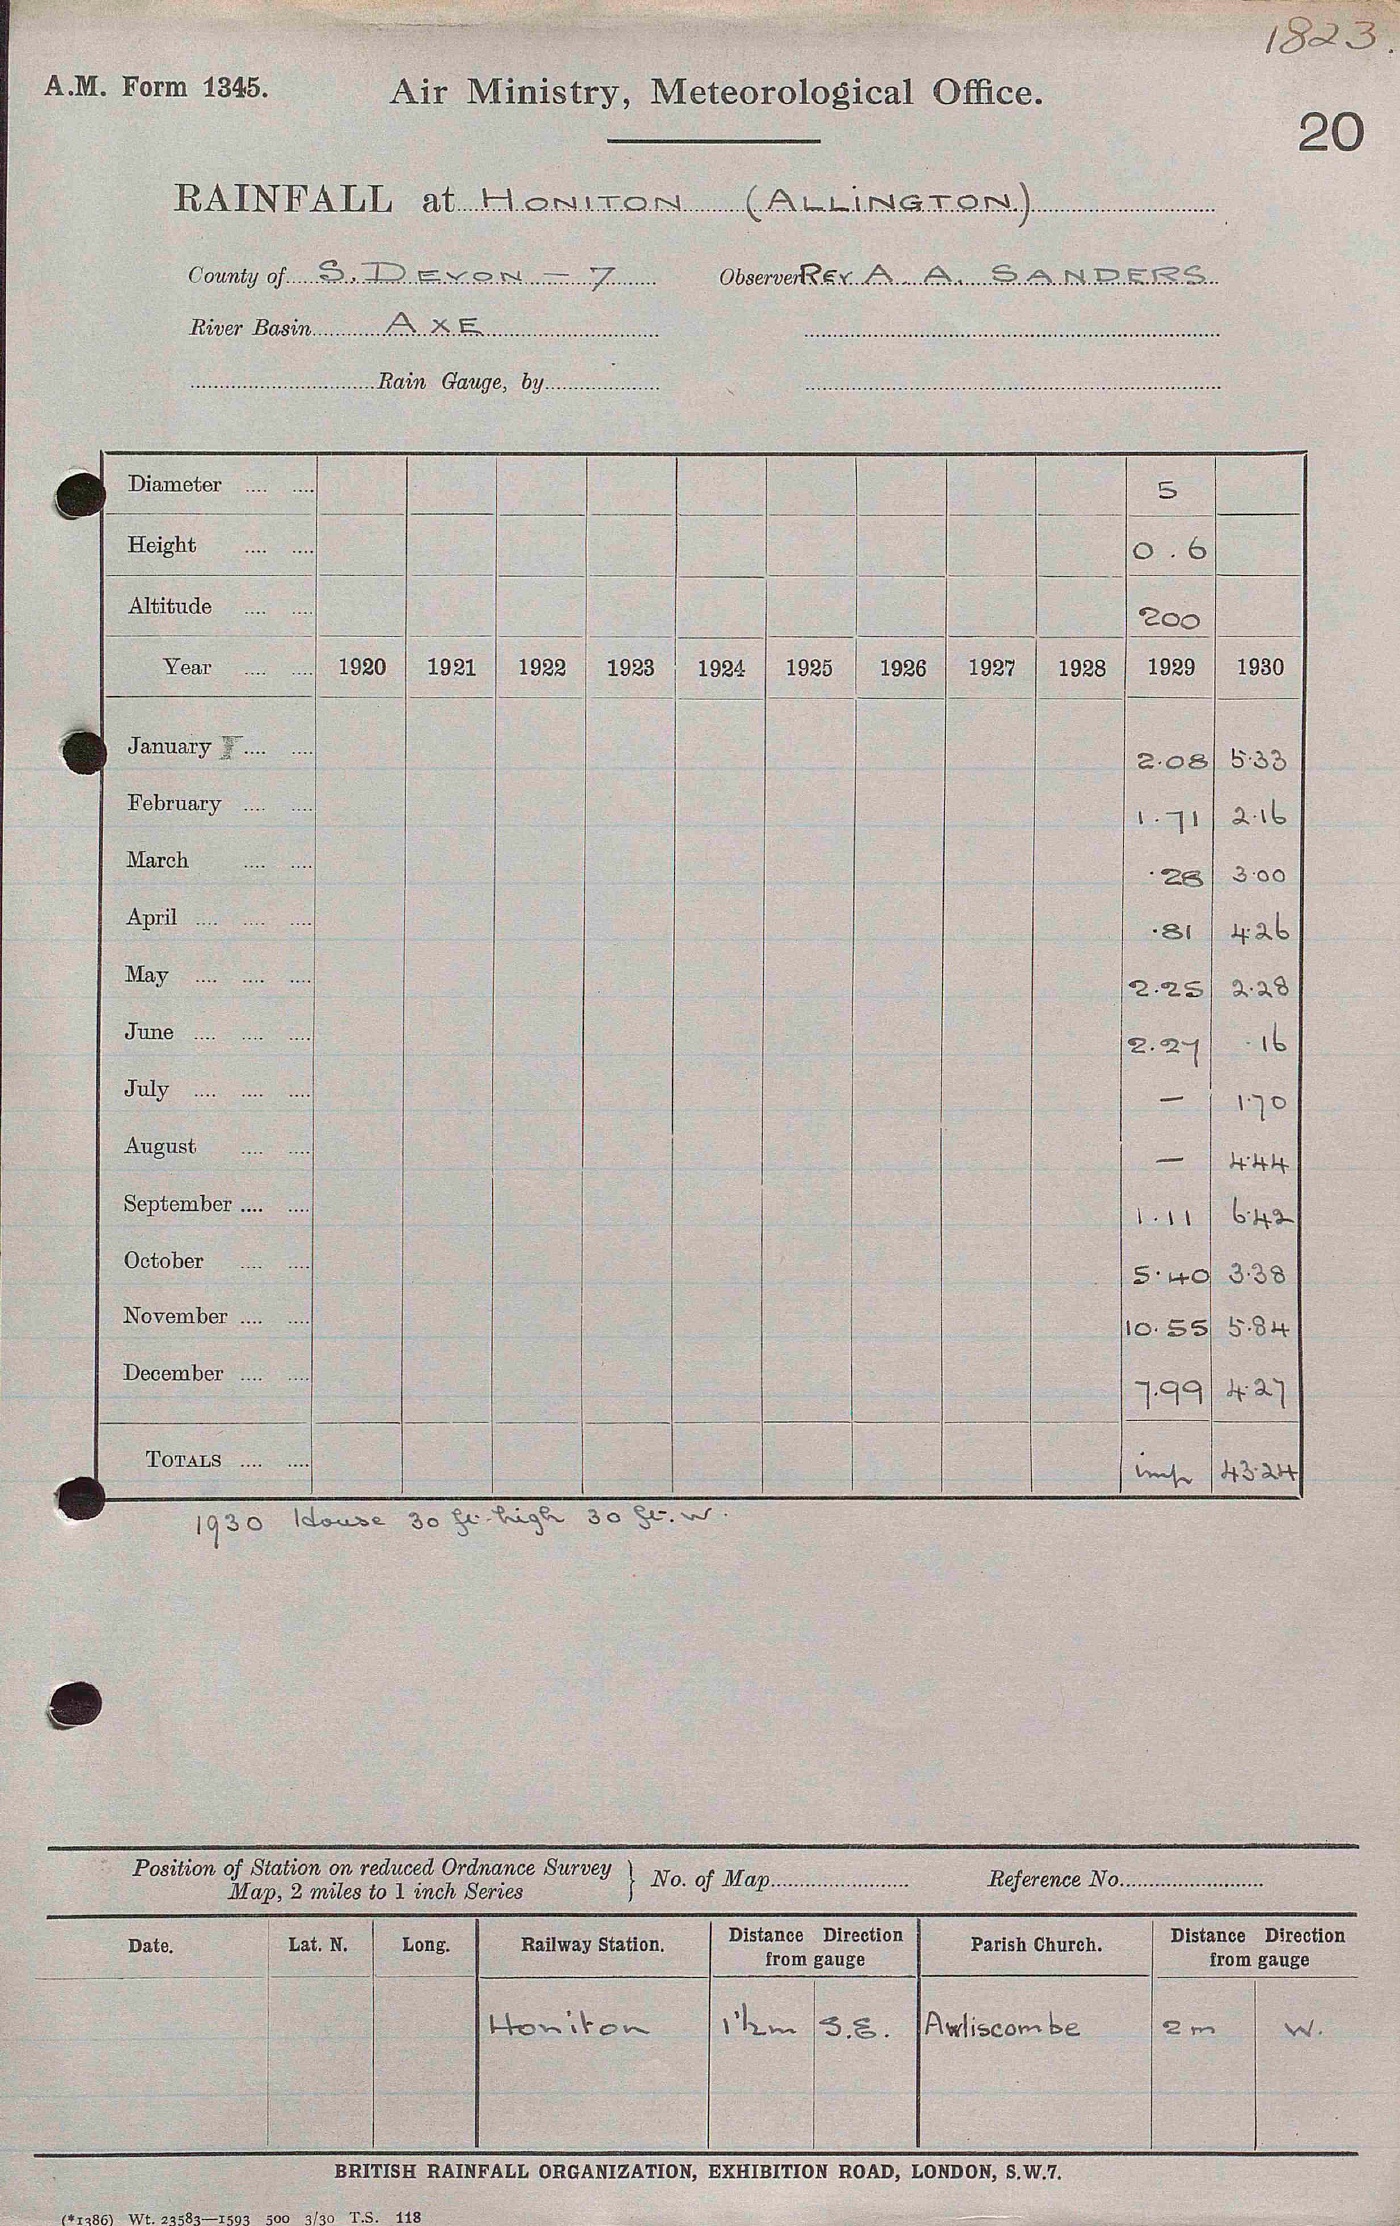 1823.
A.M. Form 1345.
Air Ministry, Meteorological Office.
20
RAINFALL at HONITON (ALLINGTON)
County of S. DEVON - 7 Observer REV A. A. SANDERS
River Basin AXE
Rain Gauge, by
Diameter 5
Height 0.6
Altitude 200
Year 1920 1921 1922 1923 1924 1925 1926 1927 1928 1929 1930
January 2.08 5.33
February 1.71 2.16
March .28 3.00
April .81 4.26
May 2.25 2.28
June 2.27 .16
July — 1.70
August — 4.44
September 1.11 6.42
October 5.40 3.38
November 10.55 5.84
December 7.99 4.27
TOTALS imp 43.24
1930 House 30 ft. high 30 ft. W.
Position of Station on reduced Ordnance Survey Map, 2 miles to 1 inch Series } No. of Map Reference No.
Date. Lat. N. Long. Railway Station. Distance Direction from gauge Parish Church. Distance Direction from gauge
Honiton 1½m S.E. Awliscombe 2m W.
BRITISH RAINFALL ORGANIZATION, EXHIBITION ROAD, LONDON, S.W.7.
(*1386) Wt. 23583—1593 500 3/30 T.S. 118